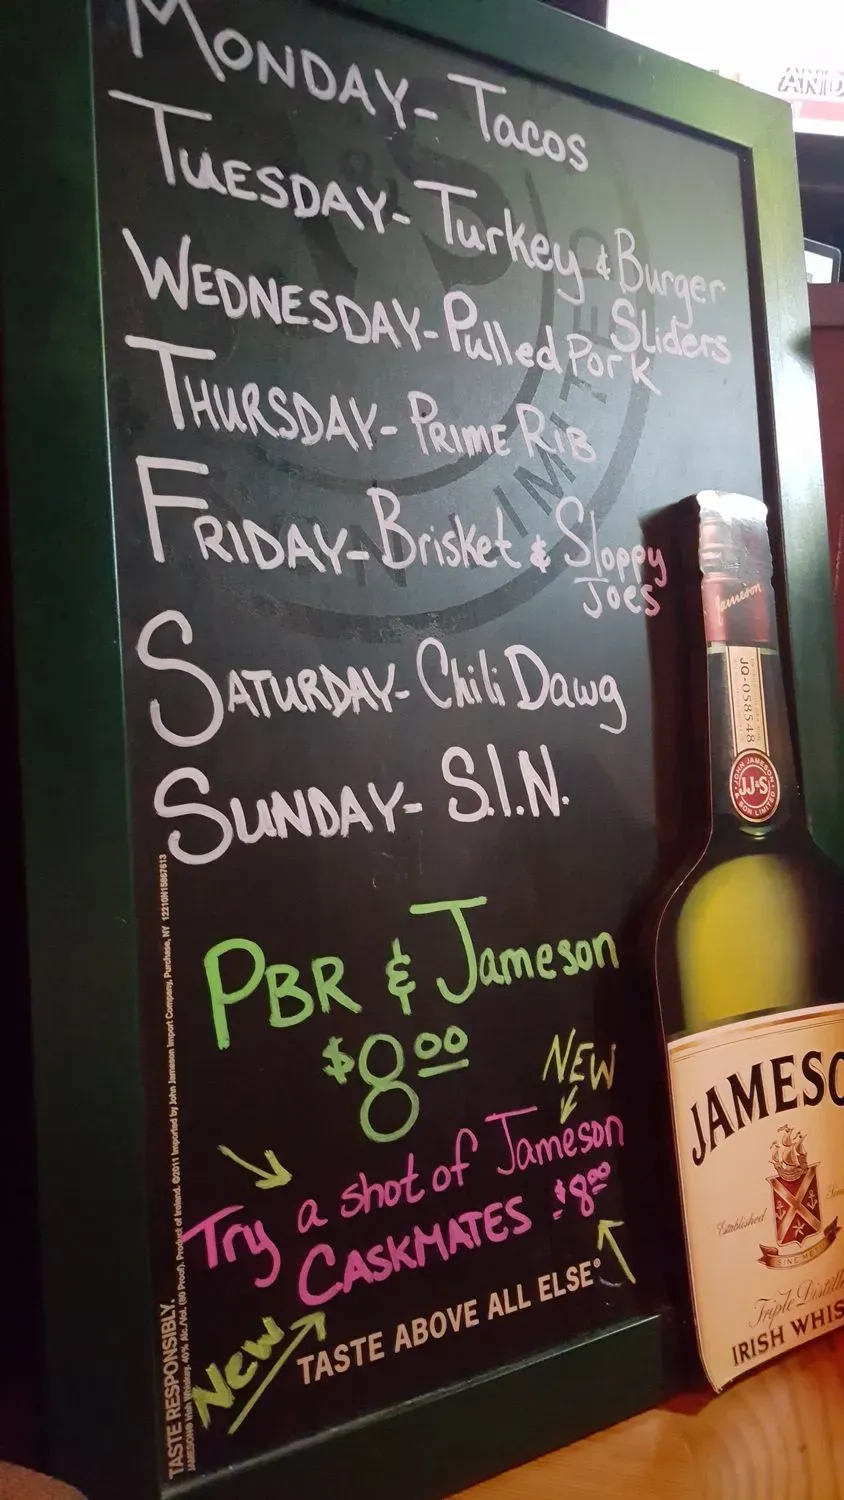 MONDAY- Tacos
TUESDAY- Turkey & Burger
Sliders
WEDNESDAY- Pulled Pork
THURSDAY- PRIME RIB
FRIDAY- Brisket & Sloppy
Joes
SATURDAY- Chili Dawg
SUNDAY- S.I.N.
PBR & Jameson
$8.00
NEW
Try a shot of Jameson
CASKMATES $8.00
New
TASTE ABOVE ALL ELSE®
TASTE RESPONSIBLY.
JAMESON® Irish Whiskey. 40% Alc./Vol. (80 Proof). Product of Ireland. ©2011 Imported by John Jameson Import Company, Purchase, NY 12210N15067613
ON LIMITED
AND
Jameson
JQ-058548
JOHN JAMESON
JJ&S
& SON LIMITED
JAMESO
Established
SINE METU
Triple Distill
IRISH WHIS